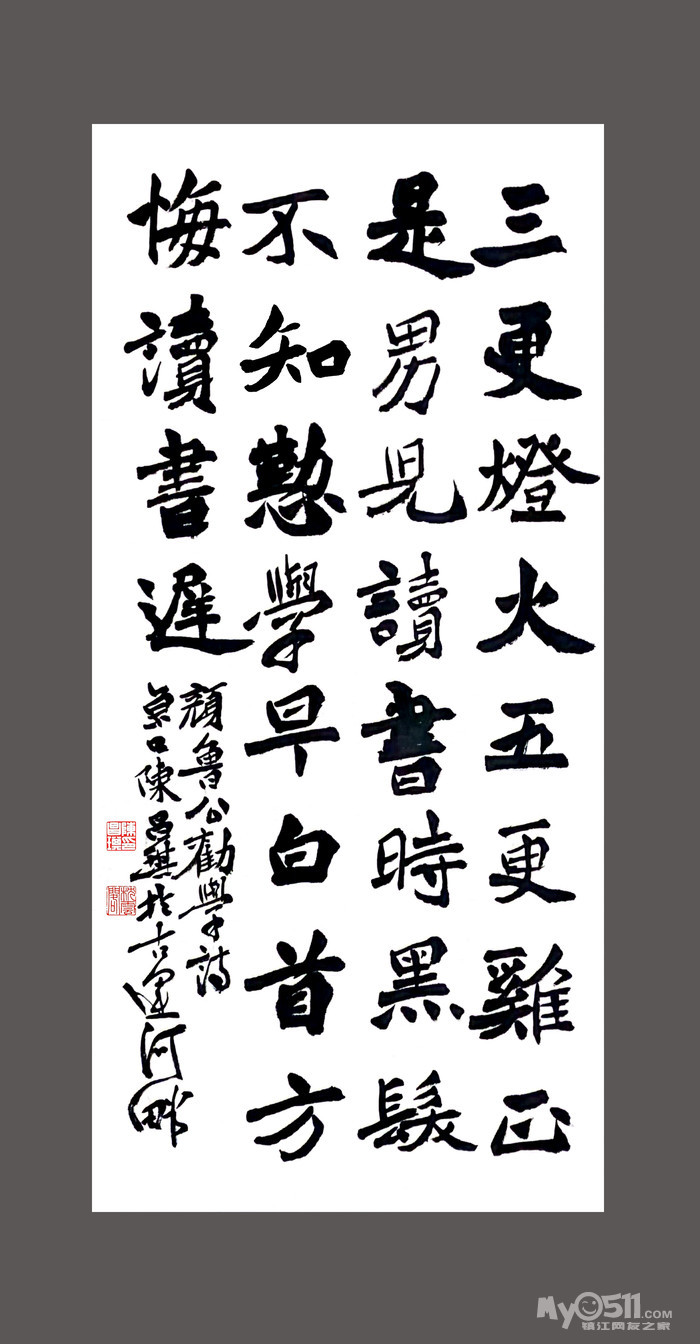 三更燈火五更雞正
是男兒讀書時黑髮
不知懃學早白首方
悔讀書遲
顏魯公勸學詩
京口陳昌於古運河畔
My0511.com
镇江网友之家